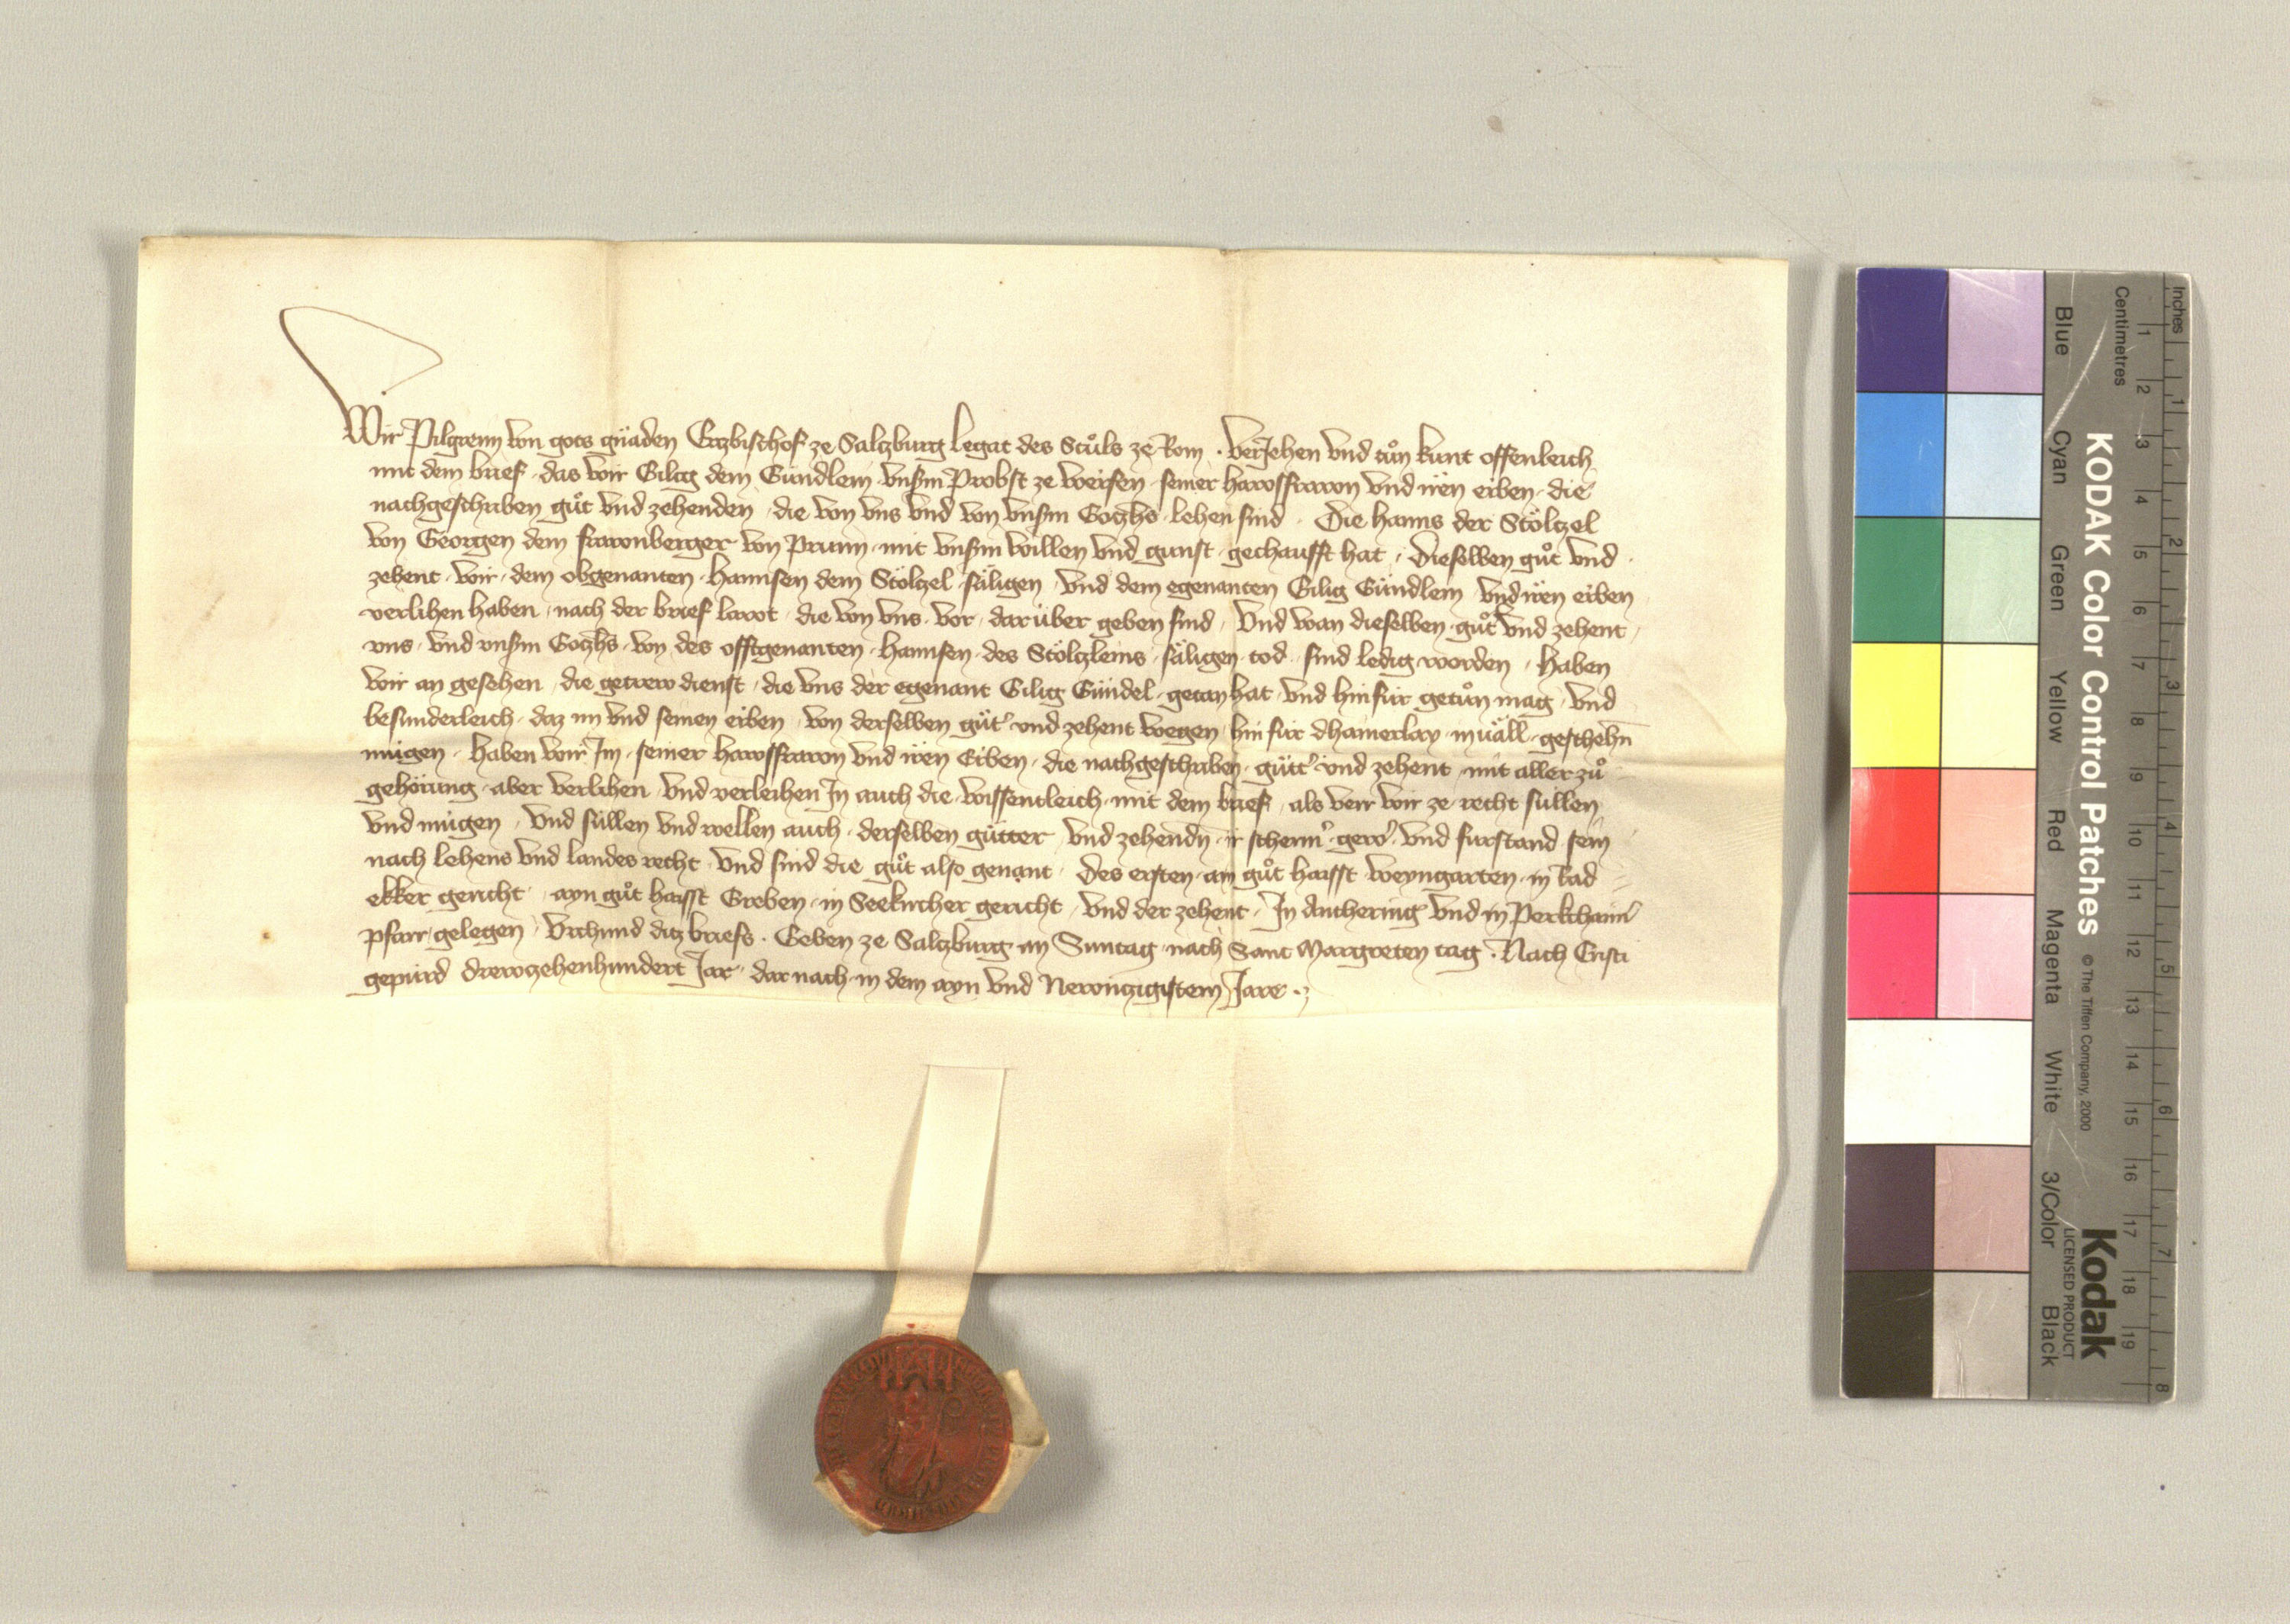 Wir Pilgreim von gots gnaden Ertzbischof ze Saltzburg Legat des Stůls ze Rom · Veriehen vnd tůn kunt offenleich
mit dem brief · das wir Gilig dem Gündlein vnsm̄ Probst ze Weifen · seiner hawsfrawn vnd iren erben · die
nachgeschriben gůt vnd zehenden · die von vns vnd von vnsm̄ Gotzhs · lehen sind · Die hanns der Stöltzel
von Georgen dem frawnberger von Prunn · mit vnsm̄ willen vnd gunst · gechaufft hat · Dieselben gůt vnd
zehent · wir · dem obgenanten · hannsen dem Stöltzel · säligen vnd dem egenanten Gilig Gündlein vnd iren erben
verlihen haben · nach der brief lawt · die von vns · vor · darüber geben sind · Vnd wan dieselben · gůt vnd zehent ·
vns · vnd vnsm̄ Gotzhs · von des offtgenanten · hannsen · des Stöltzleins · säligen · tod · sind ledig worden · haben
wir an gesehen · die getrew dienst · die vns der egenant Gilig Gündel · getan hat · vnd hinfür getůn mag · vnd
besunderleich · daz im vnd seinen erben · von derselben güt' vnd zehent wegen hin für dhainerlay inuäll · geschehn̄
mügen · haben wir Im · seiner hawsfrawn vnd iren Erben · die nachgeschriben · gütt' vnd zehent · mit aller zů
gehörung · aber verlihen vnd verleihen In auch die · wissentleich · mit dem brief · als verr wir ze recht süllen
vnd mügen · Vnd süllen vnd wellen auch · derselben gütter vnd zehendn̄ · ir scherm' · gew' · vnd furstand sein
nach lehens vnd landes recht · vnd sind die gůt also genant · Des ersten · ain gůt haisst Weyngarten · in Rad
ekker gericht · ayn gůt haisst Greben · in Seekircher gericht · vnd der zehent · In Antheringer vnd in Perkhaim'
pfarr · gelegen · Vrchund ditz briefs · Geben ze Saltzburg an Suntag · nach Sant Margreten tag · Nach Cristi
gepürd drewtzehenhundert Jar · dar nach · in dem ayn vnd Newntzigistem Jare ·
Inches
Centimetres
1 2 3 4 5 6 7 8
1 2 3 4 5 6 7 8 9 10 11 12 13 14 15 16 17 18 19
Blue Cyan Green Yellow Red Magenta White 3/Color Black
KODAK Color Control Patches © The Tiffen Company, 2000
Kodak
LICENSED PRODUCT